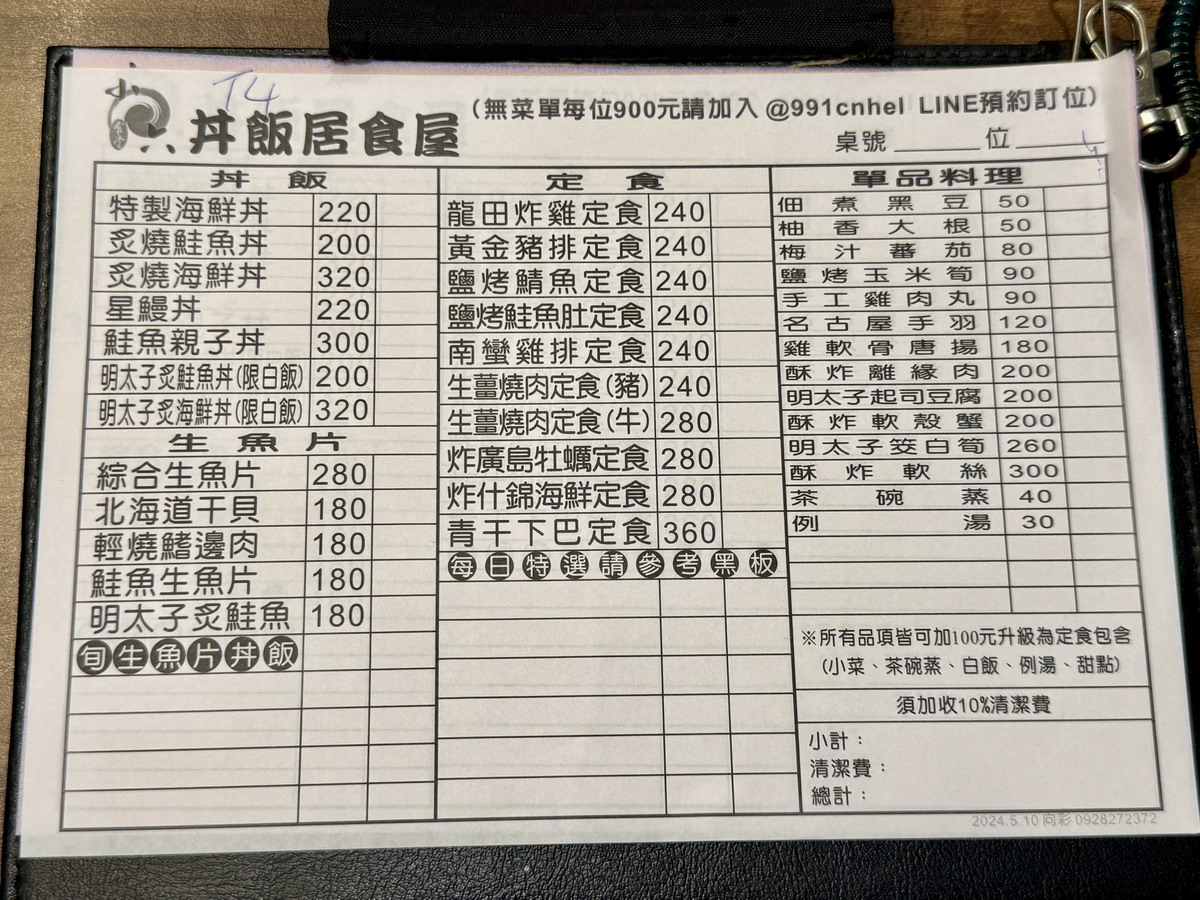 T4
丼飯居食屋
(無菜單每位900元請加入 @991cnhel LINE預約訂位)
桌號______位______
丼飯
特製海鮮丼 220
炙燒鮭魚丼 200
炙燒海鮮丼 320
星鰻丼 220
鮭魚親子丼 300
明太子炙鮭魚丼(限白飯) 200
明太子炙海鮮丼(限白飯) 320
生魚片
綜合生魚片 280
北海道干貝 180
輕燒鰭邊肉 180
鮭魚生魚片 180
明太子炙鮭魚 180
旬生魚片丼飯
定食
龍田炸雞定食 240
黃金豬排定食 240
鹽烤鯖魚定食 240
鹽烤鮭魚肚定食 240
南蠻雞排定食 240
生薑燒肉定食(豬) 240
生薑燒肉定食(牛) 280
炸廣島牡蠣定食 280
炸什錦海鮮定食 280
青干下巴定食 360
每日特選請參考黑板
單品料理
佃煮黑豆 50
柚香大根 50
梅汁蕃茄 80
鹽烤玉米筍 90
手工雞肉丸 90
名古屋手羽 120
雞軟骨唐揚 180
酥炸離緣肉 200
明太子起司豆腐 200
酥炸軟殼蟹 200
明太子筊白筍 260
酥炸軟絲 300
茶碗蒸 40
例湯 30
※所有品項皆可加100元升級為定食包含
(小菜、茶碗蒸、白飯、例湯、甜點)
須加收10%清潔費
小計：
清潔費：
總計：
2024.5.10 同彩 0928272372